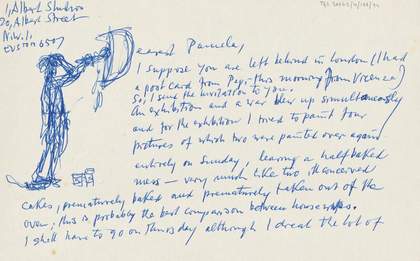 20, Albert Street
N.W.1,
EUSTON 6507
Dearest Pamela,
I suppose you are left behind in London (I had
a post card from Pepi this morning from Vicenza)
So, I send the invitation to you.
An exhibition and a war blew up simultaneously
and for the exhibition I tried to paint four
pictures of which two were painted over again
entirely on Sunday, leaving a half baked
mess – very much like two ill conceived
cakes, prematurely baked and prematurely taken out of the
oven; this is probably the best comparison between housewives.
I shall have to go on Thursday although I dread the lot of